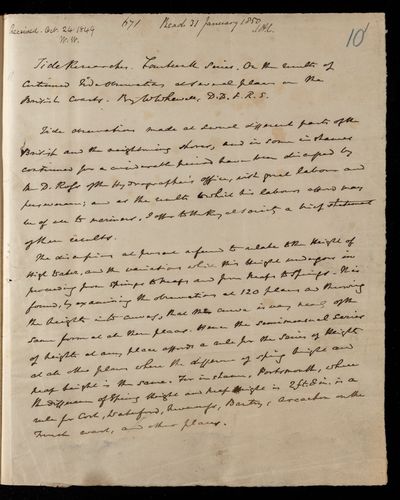 Received Oct. 24 1849
W.W.
671
Read 31 January 1850
10
Tide Researches. Fourteenth Series. On the results of
Continued Tide Observations at several places on the
British Coasts. By W. Whewell, D.D. F.R.S.
Tide observations made at several different parts of the
British and the neighbouring shores, and in some instances
continued for a considerable period have been discussed by
Mr D. Ross of the Hydrographer's office, with great labour and
perseverance; and as the results to which his labours afford may
be of use to mariners, I offer to the Royal Society a brief statement
of these results.
The discussions at present referred to relate to the Height of
High Water, and the variations which this Height undergoes in
proceeding from springs to neaps and from neaps to springs. It is
found, by examining the observations at 120 places and throwing
the heights into curves, that the curve is very nearly of the
same form at all these places. Hence the semimensual series
of heights at any place affords a rule for the series of Heights
at all other places where the difference of spring height and
neap height is the same. For instance, Portsmouth, where
the difference of Spring Height and Neap Height is 2 ft. 8 in. is a
rule for Cork, Waterford, Inverness, Bantry, Arcachon on the
French coast, and other places.